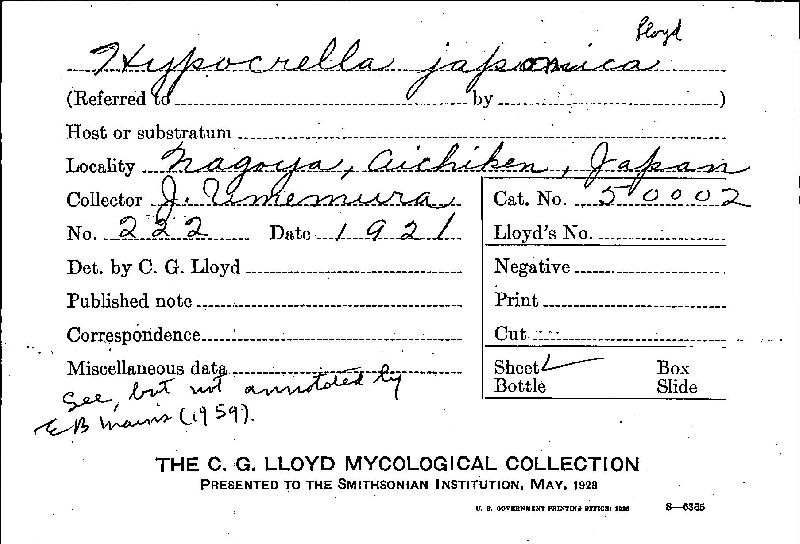 Lloyd
Hypocrella japonica
(Referred to by )
Host or substratum
Locality Nagoya, Aichiken, Japan
Collector J. Umemura. Cat. No. 50002
No. 222 Date 1921 Lloyd's No.
Det. by C. G. Lloyd Negative
Published note Print
Correspondence Cut
Miscellaneous data Sheet ✓ Box
Bottle Slide
See, but not annotated by
EB Mains (1959).
THE C. G. LLOYD MYCOLOGICAL COLLECTION
PRESENTED TO THE SMITHSONIAN INSTITUTION, MAY, 1928
U. S. GOVERNMENT PRINTING OFFICE: 1928 8—6385